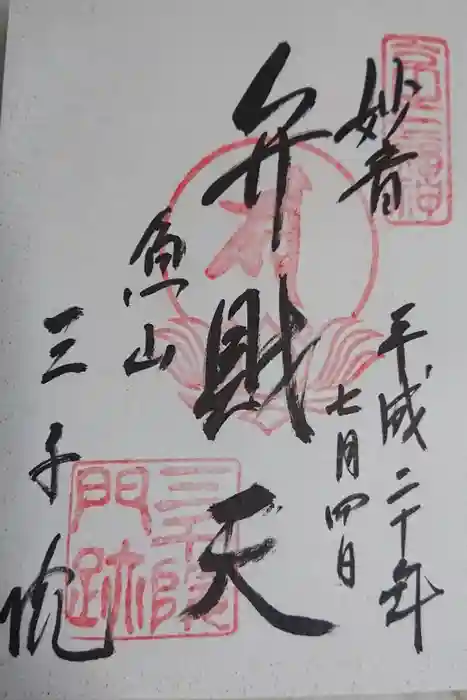 妙音
平成二十年
七月四日
弁財天
魚山
三千院
三千院
門跡